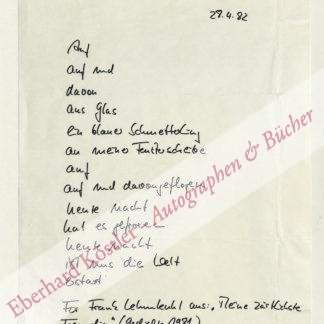 29.4.82
Auf
auf und
davon
aus Glas
ein blauer Schmetterling
an meiner Fensterscheibe
auf
auf und davongeflogen
heute Nacht
hat es gefroren
heute Nacht
ist uns die Welt
Für Frank aus: "Meine zärtlichste
1981)
Eberhard Köstler Autographen & Bücher